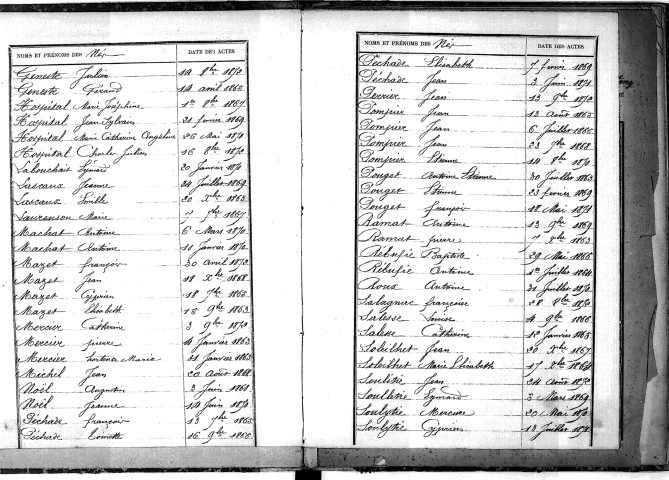 NOMS ET PRÉNOMS DES Nés DATE DES ACTES
Geneste Julien 14 8bre 1870
Geneste Géraud 14 avril 1865
Hospital Marie Joséphine 1er 8bre 1867
Hospital Jean Sylvain 21 février 1869
Hospital Marie Catherine Angeline 26 Mai 1870
Hospital Charles Julien 16 8bre 1872
Labouchair Eymard 20 Janvier 1870
Lascaux Jeanne 24 Juillet 1869
Lascaux Emille 20 Xbre 1863
Laurenson Marie 7 7bre 1867
Machat Antoine 6 Mars 1870
Machat Antoine 10 Janvier 1870
Mazet françois 30 avril 1872
Mazet Jean 18 Xbre 1868
Mazet Cyprien 18 7bre 1865
Mazet Elisabeth 15 9bre 1863
Mercier Catherine 3 9bre 1872
Mercier pierre 4 Janvier 1863
Mercier hortense Marie 31 Janvier 1863
Michel Jean 20 Août 1868
Noël Augustin 3 Juin 1861
Noël Jeanne 14 Juin 1870
Péchade françois 13 7bre 1865
Péchade 16 9bre 1866
NOMS ET PRÉNOMS DES Nés DATE DES ACTES
Péchade Elisabeth 7 février 1869
Péchade Jean 3 Juin 1871
Perrier Jean 13 9bre 1872
Pompier Jean 13 Août 1865
Pompier Jean 6 Juillet 1866
Pompier Jean 23 7bre 1868
Pompier Etienne 14 8bre 1870
Pouget Antoine Etienne 30 Juillet 1863
Pouget Etienne 23 février 1869
Pouget françois 18 Mai 1871
Ramat Antoine 13 9bre 1869
Ramat pierre 7 8bre 1863
Rébufie Baptiste 29 Mai 1866
Rébufie Antoine 1er Juillet 1864
Roux Antoine 31 Juillet 1870
Salagnac françoise 28 8bre 1870
Salesse Louise 4 9bre 1866
Salesse Catherine 12 Janvier 1865
Soleilhet Jean 20 Xbre 1867
Soleilhet Marie Elisabeth 17 8bre 1864
Soulitre Jean 24 Août 1872
Soulitre Eymard 3 Mars 1869
Soulytre Mercure 20 Mai 1870
Soulytre Cyprien 13 Juillet 1872